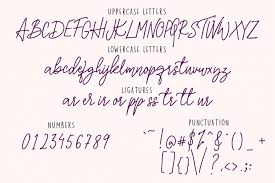 UPPERCASE LETTERS
ABCDEFGHIJKLMNOPQRSTUVWXYZ
LOWERCASE LETTERS
abcdefghijklmnopqrstuvwxyz
LIGATURES
ar er ir or ligatu pp ss tr tt ur us
NUMBERS
0123456789
PUNCTUATION
`~!@#$%^&*()_+
[]{}\|'",<>.;: